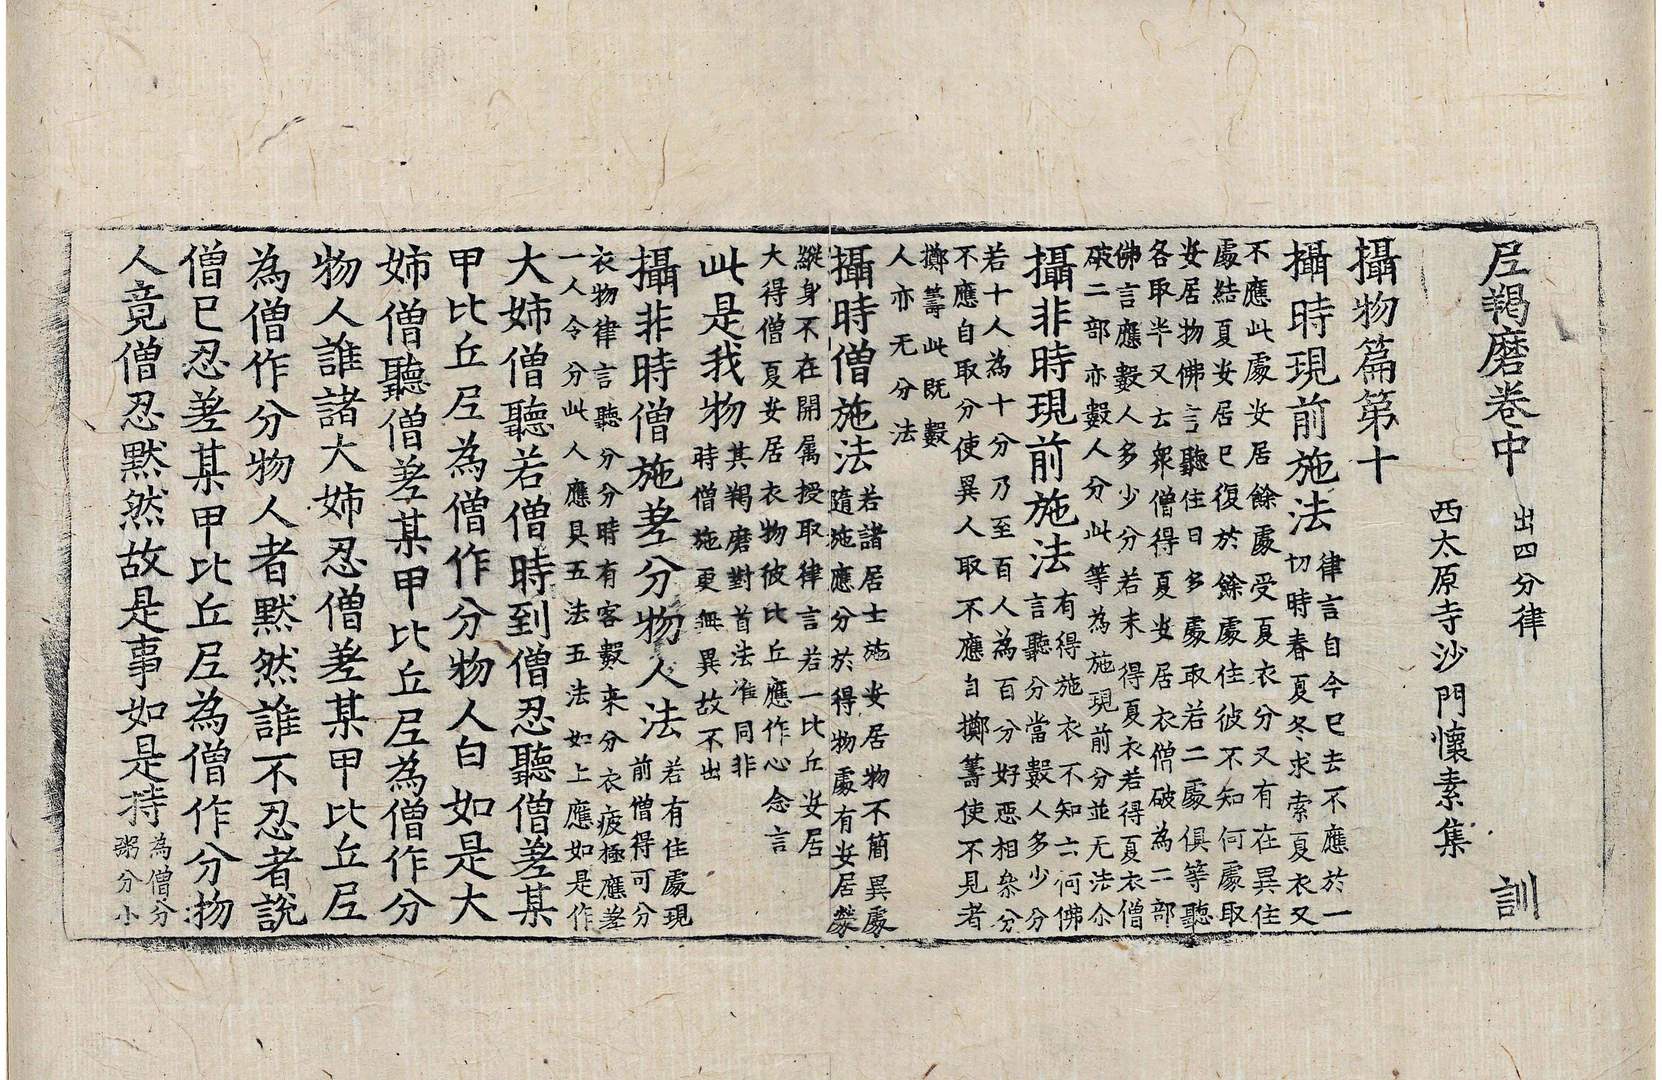 尼羯磨卷中 出四分律 訓
西太原寺沙門懷素集
攝物篇第十
攝時現前施法 律言自今已去不應於一
切時春夏冬求索夏衣又
不應此處安居餘處受夏衣分又有在異住
處結夏安居已復於餘處住彼不知何處取
安居物佛言聽住日多處取若二處俱等聽
各取半又去眾僧得夏安居衣僧破為二部
佛言應數人多少分若未得夏衣若得夏衣僧
破二部亦數人分此等為施現前分並无法尒
攝非時現前施法 有得施衣不知云何佛
言聽分當數人多少分
若十人為十分乃至百人為百分好惡相叅分
不應自取分使異人取不應自擲籌使不見者
擲籌此既數
人亦无分法
攝時僧施法 若諸居士施安居物不簡異處
隨施應分於得物處有安居
縱身不在開属授取律言若一比丘安居
大得僧夏安居衣物彼比丘應作心念言
此是我物 其羯磨對首法准同非
時僧施更無異故不出
攝非時僧施差分物人法 若有住處現
前僧得可分
衣物律言聽分分時有客數来分衣疲極應差
一人令分此人應具五法五法如上應如是作
大姊僧聽若僧時到僧忍聽僧差某
甲比丘尼為僧作分物人白如是大
姊僧聽僧差某甲比丘尼為僧作分
物人誰諸大姊忍僧差某甲比丘尼
為僧作分物人者默然誰不忍者說
僧已忍差某甲比丘尼為僧作分物
人竟僧忍默然故是事如是持 為僧分
粥分小